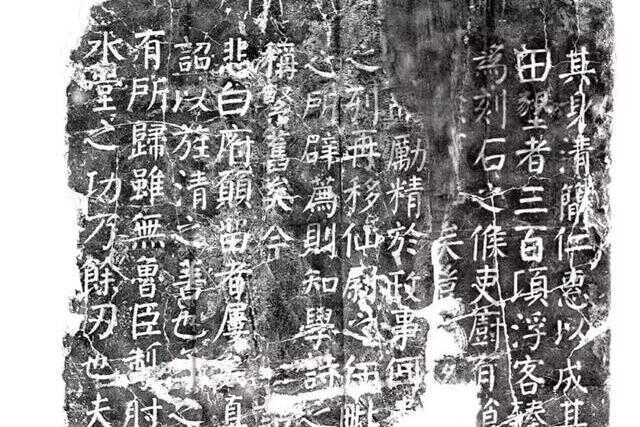 其身清簡仁惠以成其
田墾者三百頃浮客臻
為刻石之條吏廚有
矣
勵精於政事
之列再移仙尉之
之所辟薦則知學詩之
稱繄舊矣今
悲白府顧留者屢真
詔以旌清之善也之
有所歸雖無魯臣掣肘
水臺之功乃餘刃也夫